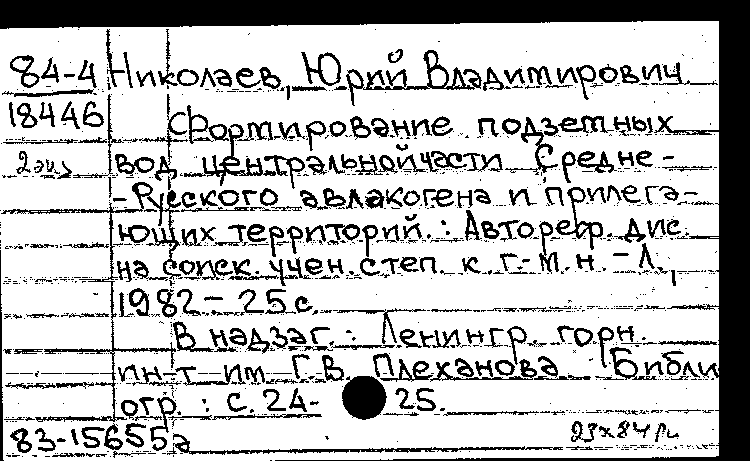 84-4 Николаев, Юрий Владимирович
18446 Формирование подземных
2 экз вод центральной части Средне-
-Русского авлакогена и прилега-
ющих территорий. : Автореф. дис.
на соиск. учен. степ. к. г.-м. н. - Л.,
1982 - 25 с.
В надзаг. : Ленингр. горн.
ин-т им Г.В. Плеханова Библи
огр. : с. 24- 25.
83-15655а